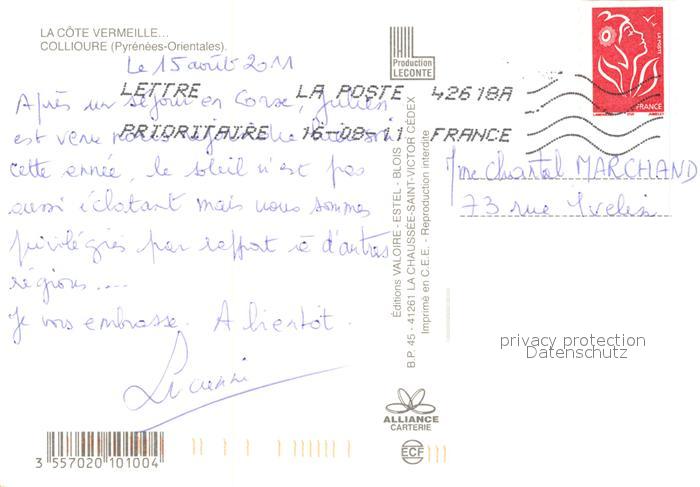 LA CÔTE VERMEILLE...
COLLIOURE (Pyrénées-Orientales).
Le 15 août 2011
Après un séjour en Corse, Julien
est venu nous
cette année, le soleil n'est pas
aussi éclatant mais nous sommes
privilégiés par rapport à d'autres
régions....
Je vous embrasse. A bientôt.
Production
LECONTE
LETTRE LA POSTE 42618A
PRIORITAIRE 16-08-11 FRANCE
LA POSTE
FRANCE
Mme Chantal MARCHAND
73 rue Yvelin
Éditions VALOIRE - ESTEL - BLOIS
B.P. 45 - 41261 LA CHAUSSÉE-SAINT-VICTOR CÉDEX
Imprimé en C.E.E. - Reproduction interdite
privacy protection
Datenschutz
ALLIANCE
CARTERIE
ECF
3 557020 101004